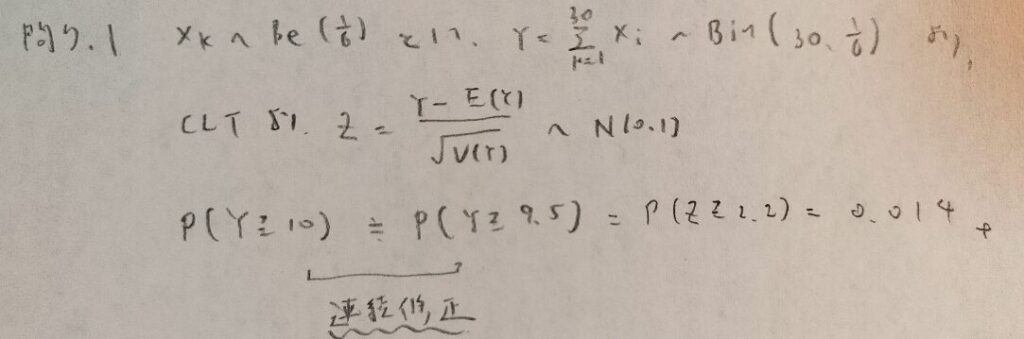 問9.1 X_k ~ Be(1/6) とし、Y = Σ_{k=1}^{30} X_i ~ Bin(30, 1/6) より、
CLT より、Z = (Y - E(Y)) / √V(Y) ~ N(0,1)
P(Y ≥ 10) ≒ P(Y ≥ 9.5) = P(Z ≥ 2.2) = 0.014
連続修正